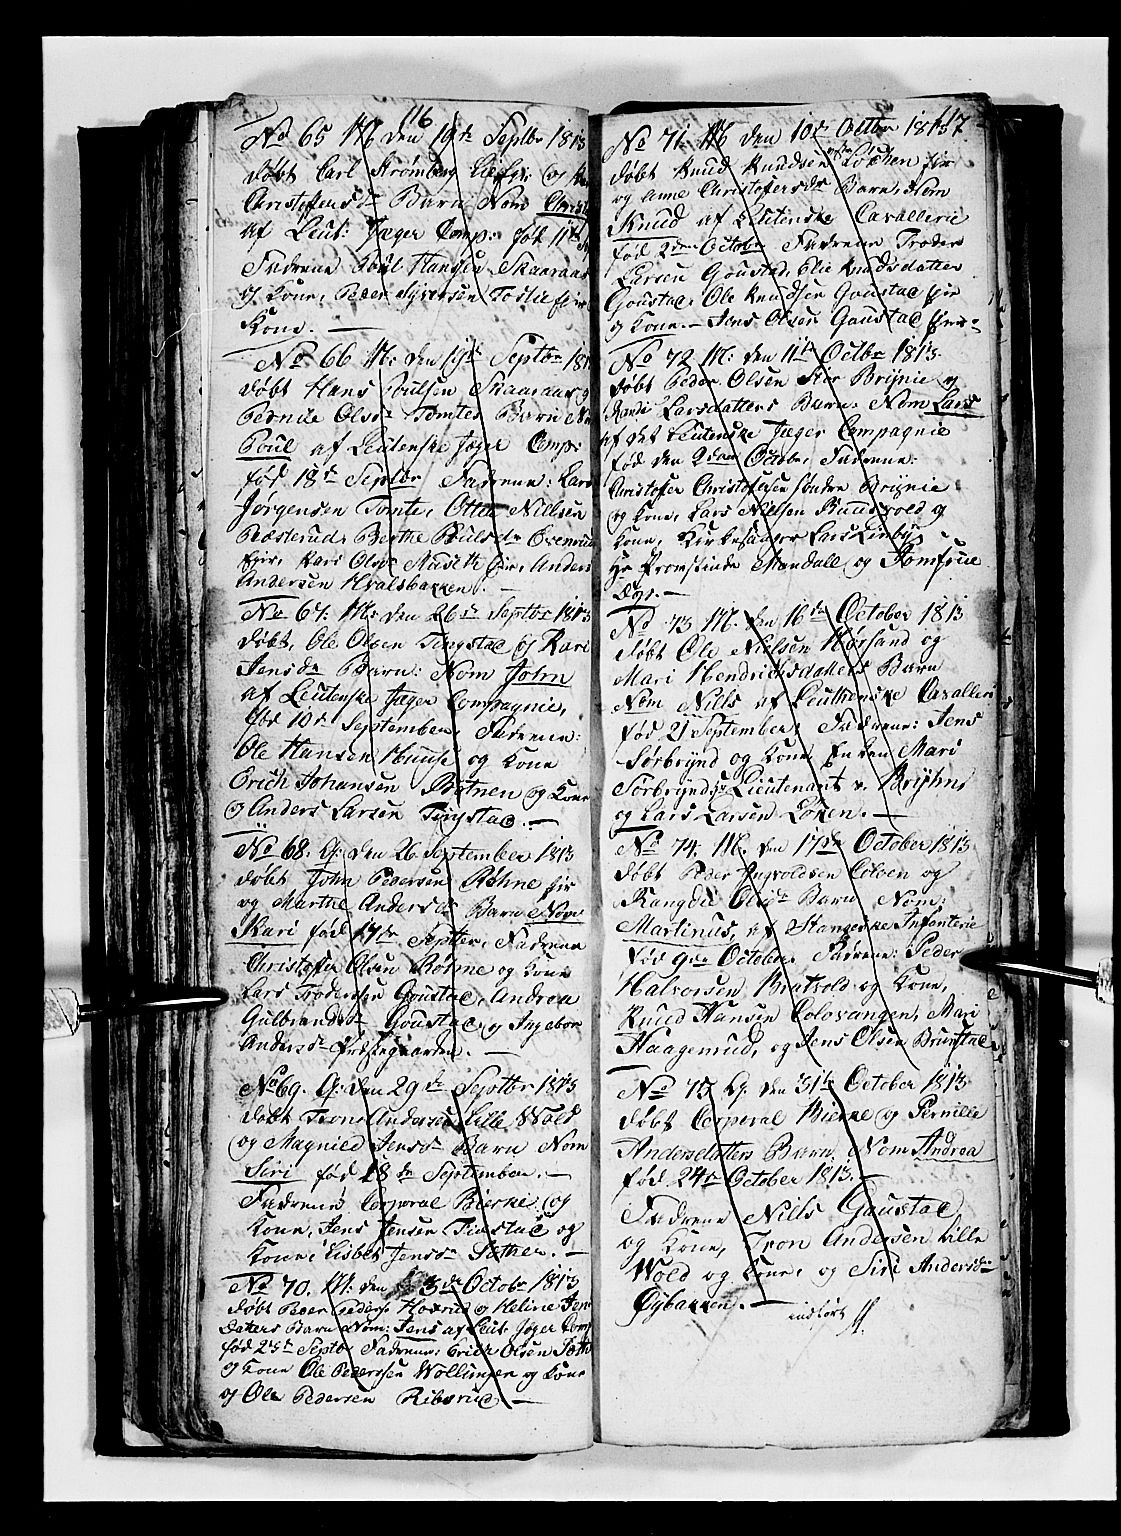 116
No 65 M. den 19de Septbr 1813
døbt Carl Strømberg og
Christoffensdr Barn Nom Christi
af Leut: Jæger Comp: fød 11te
Fadrene Poul Hansen Skaaraas
og Kone, Peder Syversen
Kone. —
No 66 M: den 19de Septbr 181
døbt Hans Poulsen Skaaraas og
Pernile Olsdr Tomtes Barn Nom
Poul af Leutenske Jæger Comp:
fød 18de Septbr Fadrene: Lars
Jørgensen Tomte, Otter Nielsen
Præsterud, Berthe Poulsdr Evenrud
Kari Olsdr Anders
Andersen Hvalsbakken. —
No 67: M: den 26de Septbr 1813
døbt, Ole Olsen Tingstad og Kari
Jensdr Barn: Nom John
af Leutenske Jæger Compagnie,
fød 10de September, Fadrene:
Ole Hansen Huuse og Kone
Erich Johansen Botnen og Kone
og Anders Larsen Tingstad. —
No 68. Q: den 26 September 1813
døbt John Pedersen Røhne
og Marthe Andersdr Barn Nom
Kari fød 17de Septbr, Fadrene
Christoffer Olsen Røhne og Kone
Lars Trodersen Goustad, Andrea
Gulbrandsdr Goustad og Ingebor
Andersdr Præstegaarden. —
No 69. Q: den 29de Septbr 1813
døbt Iron Andersen Lille Wold
og Magnild Jensdr Barn Nom
Siri fød 18de September. —
Fadrene Corporal Bierke og
Kone, Jens Jensen Tingstad og
Kone, Lisbet Jensdr Sæther. —
No 70. M: den 3de Octobr 1813
døbt Peder Peders: Hoverud og Heline Jens
datters Barn Nom: Jens af Leut: Jæger Comp
fød 25de Septbr Fadrene: Erich Olsen
og Kone Ole Pedersen Wollungen og Kone
og Ole Pedersen Riberud —
117
No 71. M den 10de Octbr 1813
døbt Knud Knudsen Løkken
og Anne Christofersdr Barn, Nom
Knud af Leutenske Cavallerie
fød 2den October Fadrene Troder
Larsen Goustad, Elie Knudsdatter
Goustad, Ole Knudsen Goustad
og Kone. — Jens Olsen Goustad
No 72. M: den 11te Octbr 1813.
døbt Peder Olsen Brynie og
Randi Larsdatters Barn. Nom Lars
af det Leutenske Jæger Compagnie
fød den 2den October, Fadrene:
Christoffer Christoffersen Søndre Brynie
og Kone, Lars Nielsen Ruudsvold og
Kone, Kirkesanger Lars Linby,
Hr Provstinde Mandall og Jomfrue
No 73 M. den 16de October 1813
døbt Ole Nielsen Hørsand og
Mari Hendrichsdatters Barn
Nom Nills af Leuthenske Cavalleri
fød 21 September, Fadrene: Jens
Sørbrynd og Kone Enken Mari
Sørbrynd, Lieutenant v. Brijhn,
og Lars Larsen Løken. —
No 74. M. den 17de October 1813
døbt Peder Ingvoldsen Coloen og
Rangdie Olsdr Barn Nom:
Martinus, af Stangeske Infanterie
fød 9de October. Fadrene: Peder
Halvorsen Bratvold og Kone,
Knud Hansen Colovangen, Mari
Haagenrud, og Jens Olsen Brunstad
No 75 Q: den 31te October 1813
døbt Corporal Bierke og Pernille
Andersdatters Barn Nom Andrea
fød 24de October 1813. —
Fadrene Nills Goustad
og Kone, Iron Andersen Lille
Wold og Kone, og Siri Andersdr
Øybakken. — indført